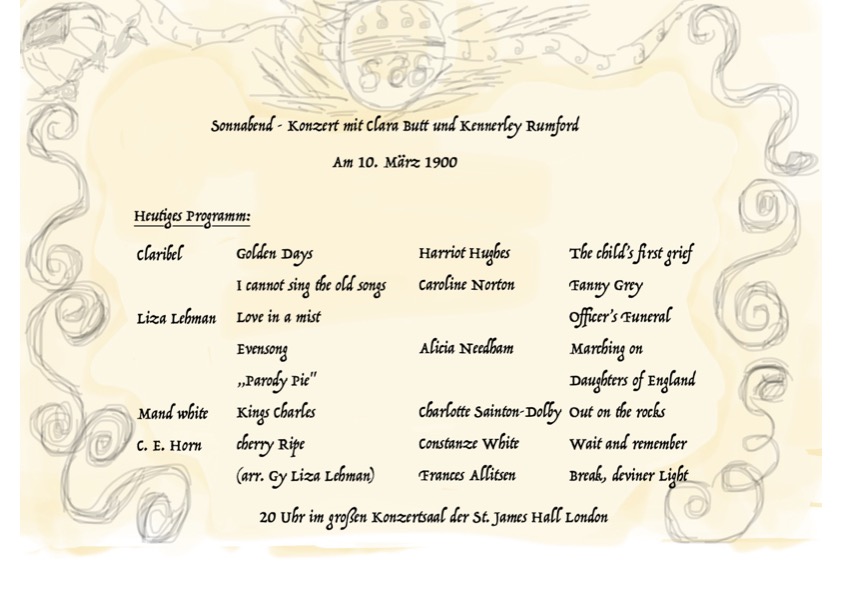 Sonnabend - Konzert mit Clara Butt und Kennerley Rumford
Am 10. März 1900
Heutiges Programm:
Claribel Golden Days Harriot Hughes The child's first grief
I cannot sing the old songs Caroline Norton Fanny Grey
Liza Lehman Love in a mist Officer's Funeral
Evensong Alicia Needham Marching on
„Parody Pie" Daughters of England
Mand white Kings Charles Charlotte Sainton-Dolby Out on the rocks
C. E. Horn cherry Ripe Constanze White Wait and remember
(arr. Gy Liza Lehman) Frances Allitsen Break, deviner Light
20 Uhr im großen Konzertsaal der St. James Hall London